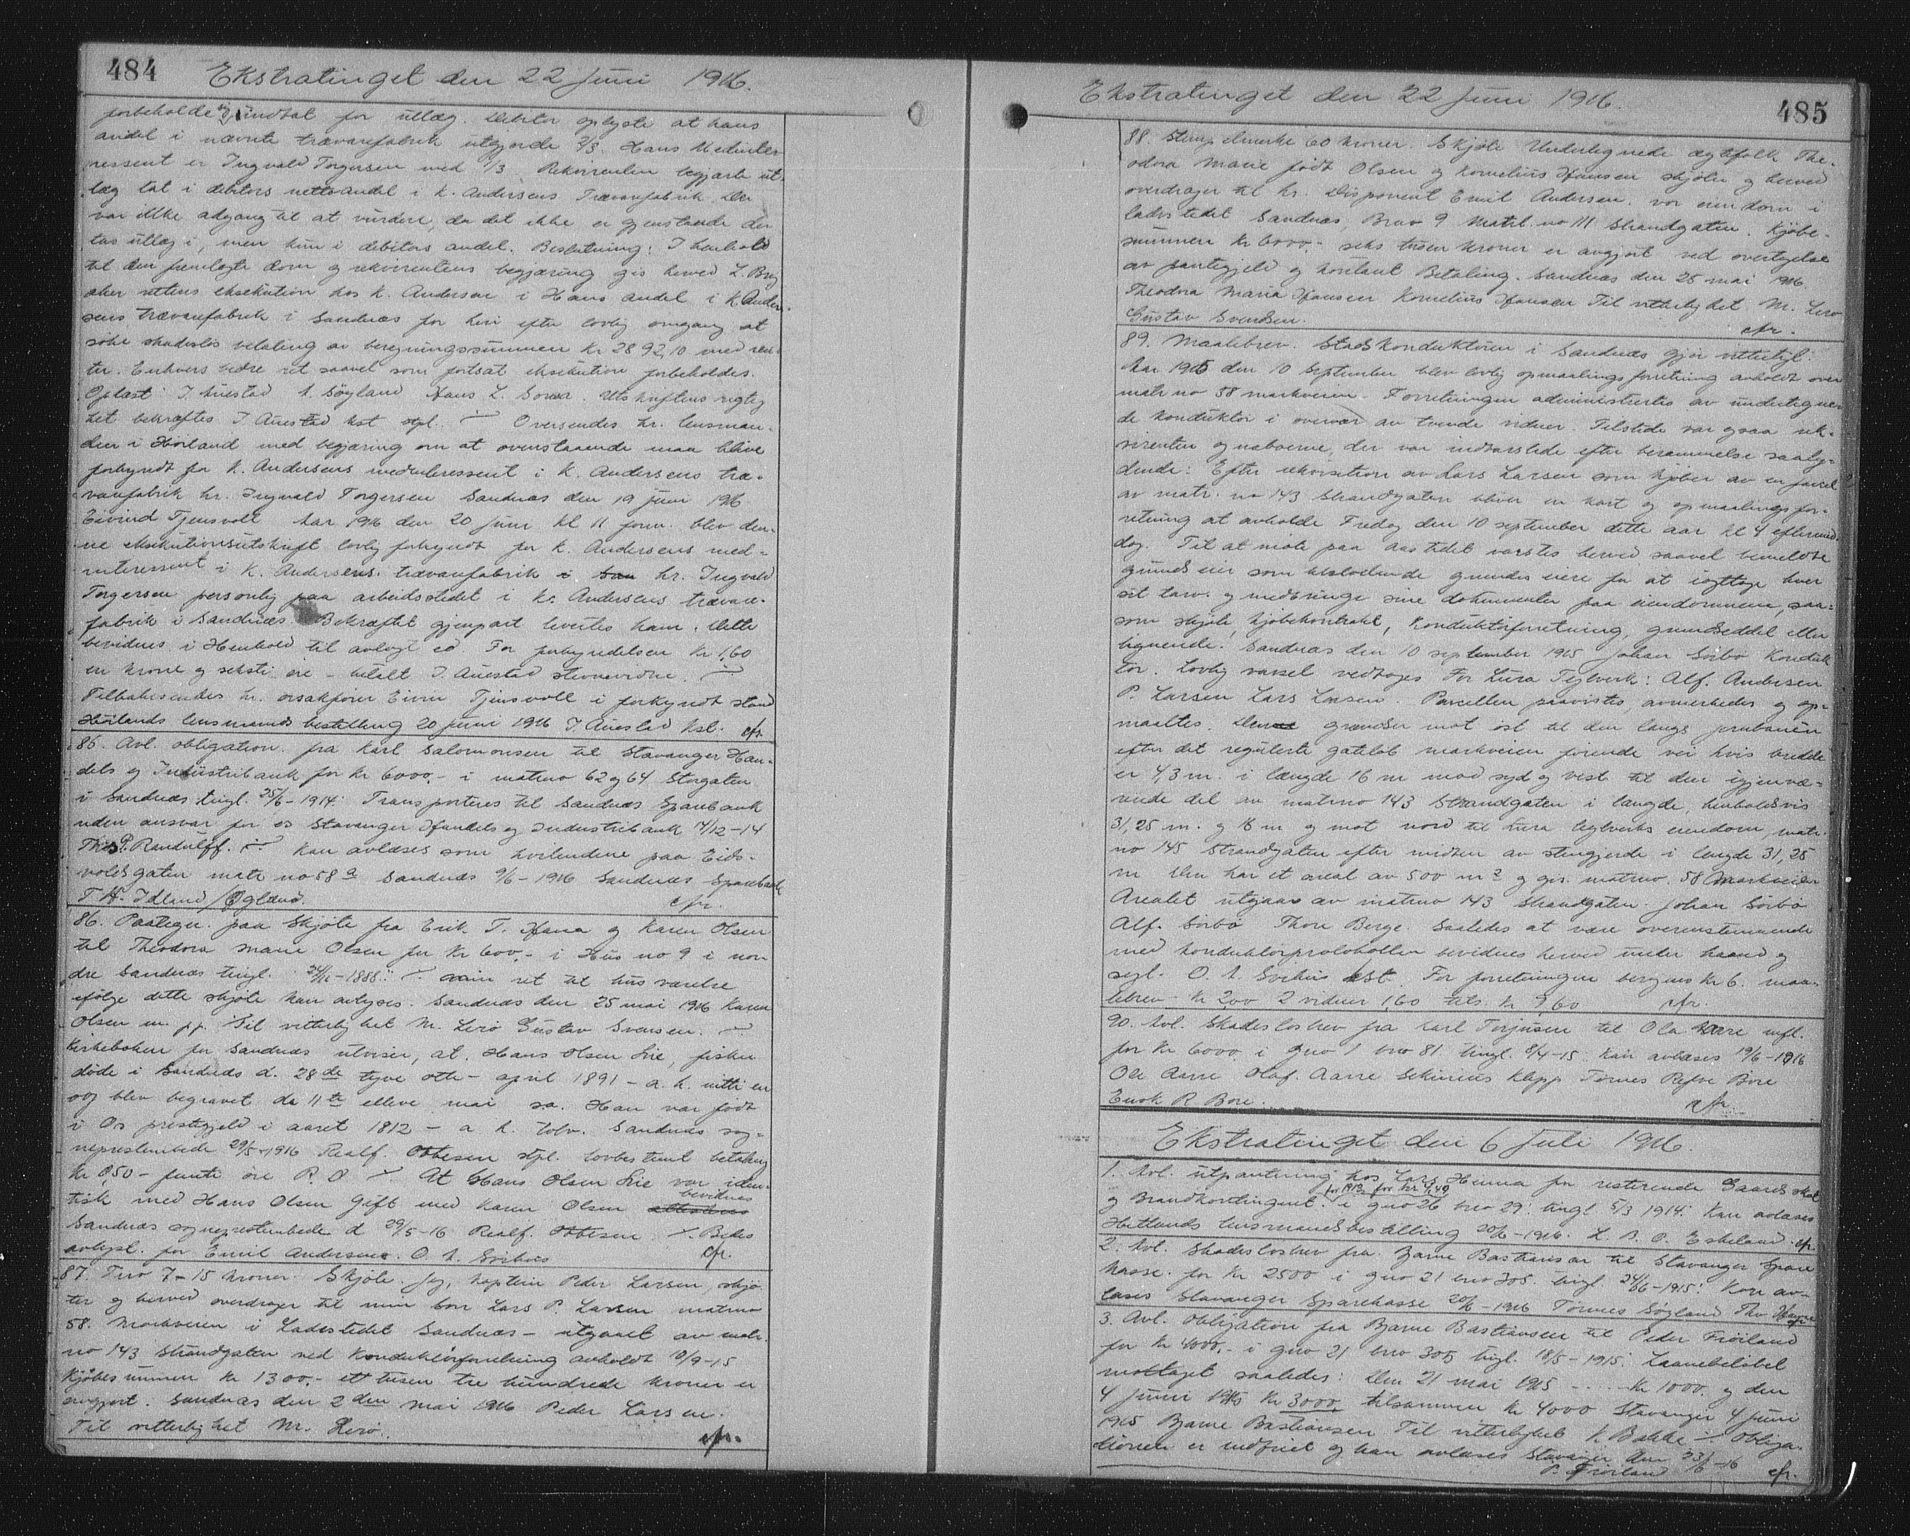 484
Ekstratinget den 22 Juni 1916.
forbeholdes undtat for utlæg. Debitor oplyste at hans
andel i nævnte trævarefabrik utgjorde 2/3. Hans Medinte-
ressent er Ingvald Torgersen med 1/3. Rekvirenten begjærte ut-
læg tat i debitors nettoandel i K. Andersens Trævarefabrik. Der
var ikke adgang til at vurdere, da det ikke er gjenstande der
tas utlæg i, men kun i debitors andel. Beslutning: I henhold
til den fremlagte dom og rekvirentens begjæring gis herved L. Bryg
aker rettens eksekution hos K. Andersen i Hans andel i K. Ander-
sens trævarefabrik i Sandnæs for heri efter lovlig omgang at
søke skadesløs betaling av beregningssummen kr 2892,10 med ren-
ter. Enhvers bedre ret saavel som fortsat eksekution forbeholdes.
Oplæst. I Auestad A. Søyland Hans L. Utskriftens rigtig
het bekræftes I Auestad kst stpl. Oversendes hr. lensman-
den i Høiland med begjæring om at ovenstaaende maa blive
forkyndt for K. Andersens medinteressent i K. Andersens træ-
varefabrik hr. Ingvald Torgersen Sandnæs den 19 juni 1916
Eivind Tjensvoll Aar 1916 den 20 juni kl 11 form. blev den-
ne eksekutionsutskrift lovlig forkyndt for K. Andersens med-
interessent i K. Andersens trævarefabrik hr. Ingvald
Torgersen personlig paa arbeidsstedet i K. Andersens trævare-
fabrik i Sandnæs. Bekræftet gjenpart levertes ham. Dette
bevidnes i Henhold til avlagt ed. For forkyndelsen kr 1,60
en krone og seksti øre - betalt I. Auestad stevnevidne.
Tilbakesendes hr. orsakfører Eivin Tjensvoll i forkyndt stand
Høilands lensmandsbestilling 20 juni 1916 I. Auestad kst. cfr.
85. Avl. obligation fra Karl Salomonsen til Stavanger Han-
dels og Industribank for kr 6000,- i matrno 62 og 64 Storgaten
i Sandnæs tingl. 25/6-1914: Transporteres til Sandnæs Sparebank
uden ansvar for os Stavanger Handels og Industribank 4/12-14
Ths P. Randulff. kan avlæses som heftende paa Eids-
voldsgaten matr no 58 a Sandnæs 9/6-1916 Sandnæs Sparebank
T H. Idland / Øglænd. cfr.
86. Paategn. paa Skjøte fra Erik T. Hana og Karen Olsen
til Theodora Marie Olsen for kr 600,- i Hus no 9 i nor
dre Sandnæs tingl. -1888: min ret til hus værelse
ifølge dette skjøte kan avlyses. Sandnæs den 25 mai 1916 Karen
Olsen m. pp. Til vitterlighet M. Lerø Gustav Svensen.
Kirkeboken for Sandnæs utviser, at, Hans Olsen Lie, fisker
døde i Sandnæs d. 28de tyve otte - april 1891 - a. h. nitti en
og blev begravet de 11te elleve mai s.a. Han var født
i Os prestegjeld i aaret 1812 - a. h. tolv. Sandnæs sog-
neprestembede 29/5-1916 Realf. Ottesen stpl. lovbestemt betaling
kr 0,50 - femti øre R. O At Hans Olsen Lie var iden-
tisk med Hans Olsen Gift med Karen Olsen bevidnes
Sandnæs sogneprestembede d 29/5-16 Realf Ottesen. Bekr
avlysl. for Emil Andersen. cfr.
87. Tiro 7-15 kroner. Skjøte. Jeg, kaptein Peder Larsen, skjø
ter og herved overdrager til min søn Lars P. Larsen matrno
58. Markveien i Ladestedet Sandnæs - utgaaet av matr.
no 143 Strandgaten ved Konduktørforretning avholdt 10/9-15
Kjøbesummen kr 1300,- ett tusen tre hundrede kroner er
avgjort. Sandnæs den 2den mai 1916 Peder Larsen.
Til vitterlighet M. Lerø. cfr.
485
Ekstratinget den 22 Juni 1916.
88. Stempelmerke 60 kroner. Skjøte Undertegnede ægtefolk The-
odora Marie født Olsen og Kornelius Hansen skjøter og herved
overdrager til hr. Disponent Emil Andersen vor eiendom i
ladestedet Sandnæs, Brno 9 Matr. no 111 Strandgaten. Kjøbe-
summen kr 6000,- seks tusen kroner er avgjort ved overtagelse
av pantegjeld og kontant Betaling. Sandnæs den 25 mai 1916.
Theodora Maria Hansen Kornelius Hansen Til vitterlighet M. Lerø
Gustav Svendsen. cfr.
89. Maalebrev. Stadskonduktøren i Sandnæs gjør vitterligt:
Aar 1915 den 10 September blev lovlig opmaalingsforretning avholdt over
matr no 58 markveien. Forretningen administrertes av undertegne-
de konduktør i overvær av tvende vidner. Tilstede var ogsaa rek-
virenten og naboerne, der var indvarslede efter berammelse saaly-
dende: Efter rekvisition av Lars Larsen som kjøber av en parcel
av matr. no 143 Strandgaten bliver en kart og opmaalingsfor-
retning at avholde Fredag den 10 september dette aar kl 4 eftermid
dag. Til at møte paa aastedet varsles herved saavel bemeldte
grunds eier som tilstøtende grundes eiere for at iagttage hver
sit tarv, og medbringe sine dokumenter paa eiendommene saa-
som skjøte, kjøbekontrakt, konduktørforretning, grundseddel eller
lignende. Sandnæs den 10 september 1915 Johan Sørbø Konduk
tør. Lovlig varsel vedtages For Lura Teglverk: Alf. Andersen
P. Larsen Lars Larsen. Parcellen paavistes, avmerkedes og op-
maaltes. Den grændser mot øst til den langs jernbanen
efter det regulerte gatelet markveien førende vei hvis bredde
er 4,3 m. i længde 16 m mod syd og vest til den igjenvæ-
rende del av matrno 143 Strandgaten i længde, henholdsvis
31,25 m. og 16 m og mot nord til Lura teglverks eiendom, matr.
no 145 Strandgaten efter midten av stengjerde i længde 31,25
m Den har et areal av 500 m2 og gis. matrno. 58 Markveien
Arealet utgaar av matrno 143 Strandgaten. Johan Sørbø
Alf. Sørbø Thore Berge. Saaledes at være overensstemmende
med konduktørprotokollen bevidnes herved under haand og
segl. O. A. kst. For forretningen beregnes kr 6. maa-
lebrev - kr 2,00 2 vidner 1,60 tils. kr 9,60 cfr.
90. Avl. Skadesløsbrev fra Karl Torjusen til Ola Aarre mfl.
for kr 6000 i gno 1 bno 81 tingl. 8/4-15. kan avlæses 19/6-1916
Ola Aarre Olaf. Aarre Sekinius Klepp Tørnes Refve Bore
Enok R. Bore. cfr.
Ekstratinget den 6 Juli 1916.
1. Avl. utpantning hos Lars Henna for resterende Gaardskat
for 1912 for kr 4,40
og Brandkontingent i gno 26 bno 29: tingl 5/3 1914: Kan avlæses
Hetlands lensmandsbestilling 20/6-1916. L. B. O. Eskeland. cfr.
2. Avl. Skadesløsbrev fra Bjarne Bastiansen til Stavanger Spare
kasse. for kr 2500 i gno 21 bno 305 tingl. 24/6-1915: Kan av-
læses Stavanger Sparekasse 20/6-1916 Tørnes Søyland Thv Hansen
cfr
3. Avl. Obligation fra Bjarne Bastiansen til Peder Frøiland
for kr 4000,- i gno 21 bno 305 tingl. 18/5-1915: Laanebeløbet
mottaget saaledes: Den 21 mai 1915 - - - kr 1000. og den
4 juni 1915 kr 3000 tilsammen kr 4000 Stavanger 4 juni
1915 Bjarne Bastiansen Til vitterlighet K. Bakke Obliga-
tionen er indfriet og kan avlæses Stavanger den 23/6-16
P. Frøiland cfr.